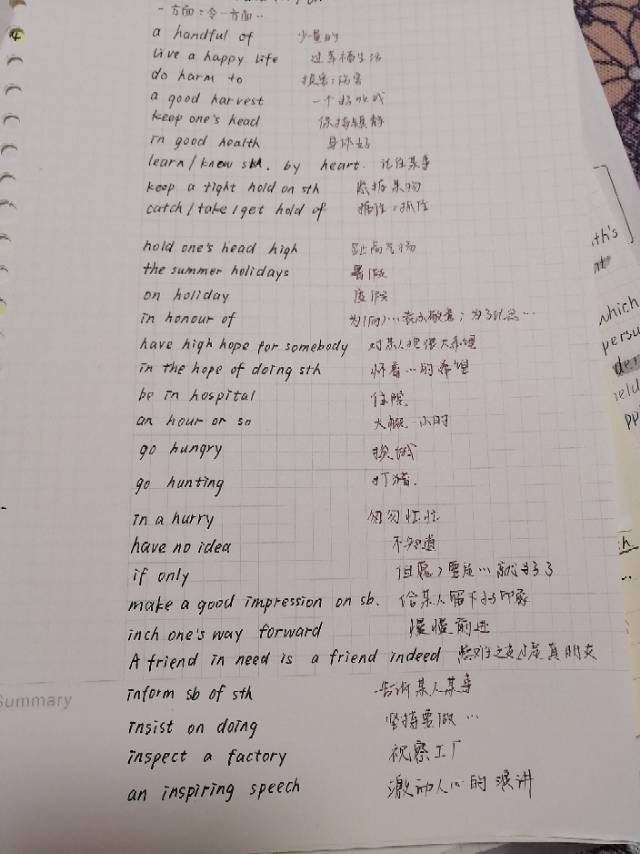 一方面：令一方面..
a handful of 少量的
live a happy life 过幸福生活
do harm to 损害；伤害
a good harvest 一个好收成
keep one's head 保持镇静
in good health 身体好
learn/know sth. by heart. 记住某事
keep a tight hold on sth 紧握某物
catch/take/get hold of 握住；抓住
hold one's head high 趾高气扬
the summer holidays 暑假
on holiday 度假
in honour of 为(向)…表示敬意；为了纪念…
have high hope for somebody 对某人抱很大希望
in the hope of doing sth 怀着…的希望
be in hospital 住院.
an hour or so 大概一小时
go hungry 挨饿
go hunting 打猎.
in a hurry 匆匆忙忙
have no idea 不知道
if only 但愿；要是…就好了
make a good impression on sb. 给某人留下好印象
inch one's way forward 慢慢前进
A friend in need is a friend indeed 患难之交才是真朋友
inform sb of sth 告诉某人某事
insist on doing 坚持要做…
inspect a factory 视察工厂
an inspiring speech 激动人心的演讲
Summary
which
persu